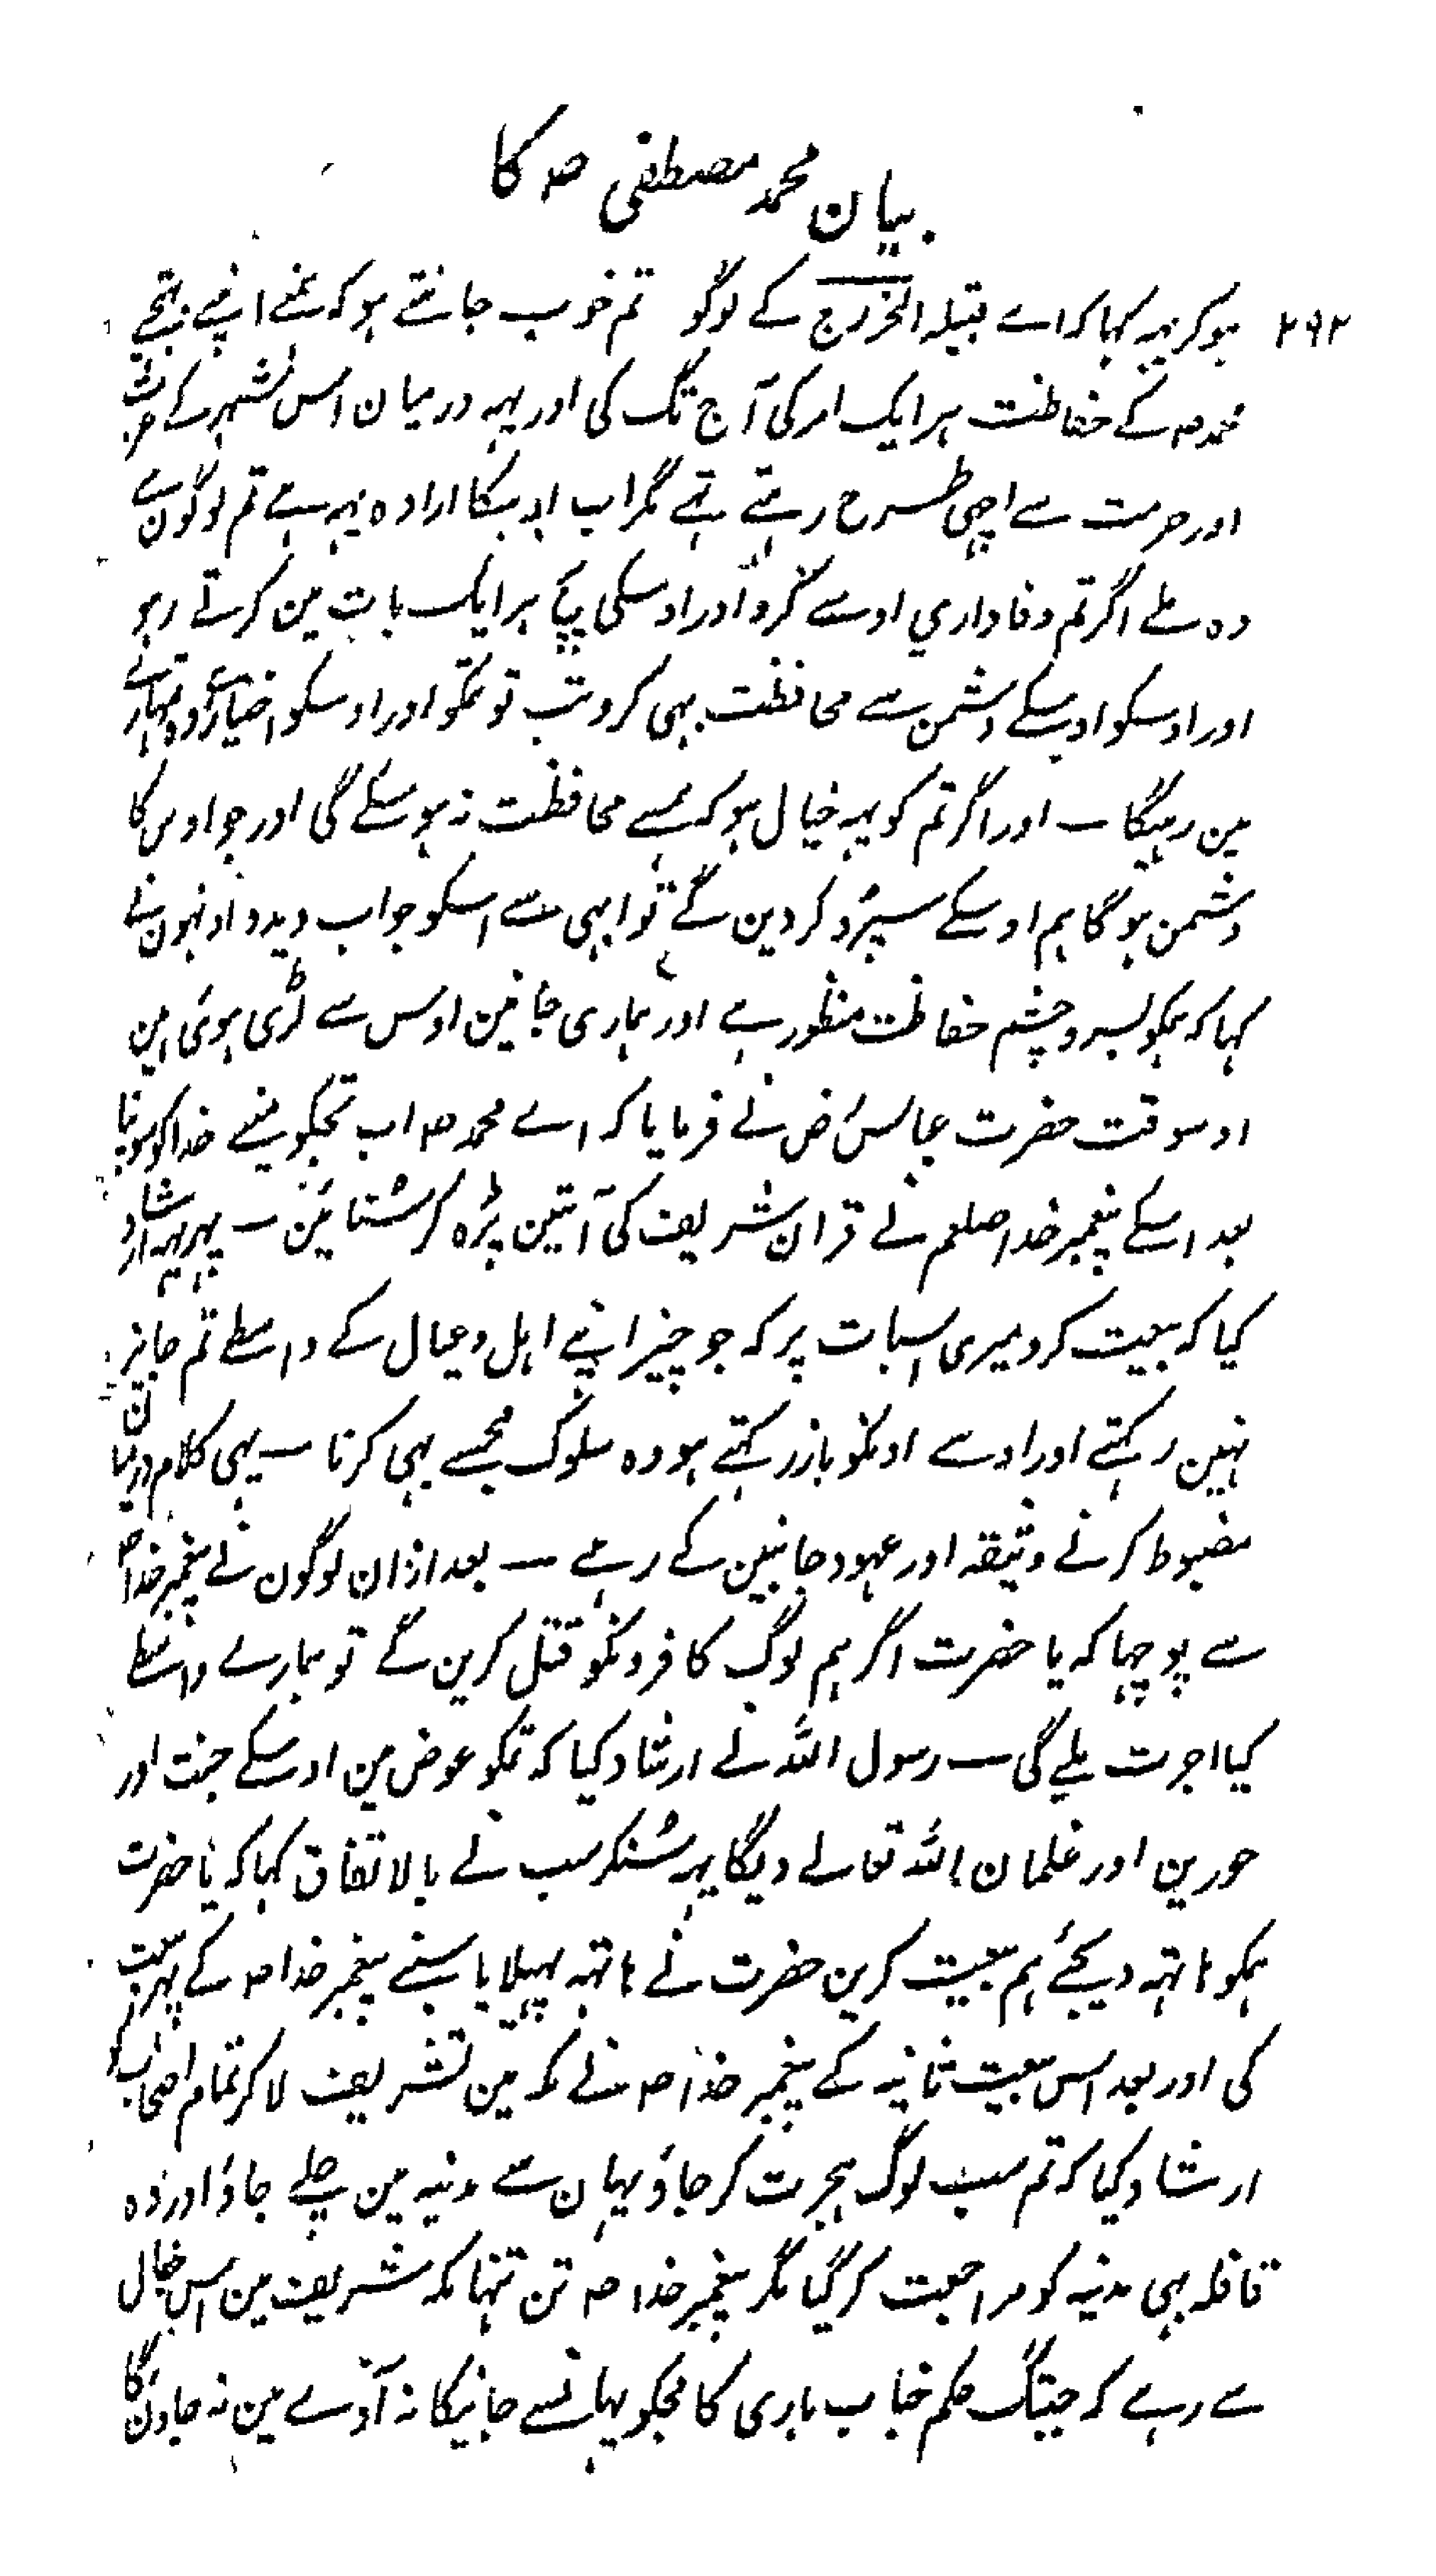 بیان محمد مصطفی ص کا
۲۹۲ ہوکر یہہ کہا کہ اے قبیلہ الخزرج کے لوگو تم خوب جانتے ہو کہ ہمنے اپنے بہتیجے
محمد ص کے حفاظت ہر ایک امر کی آج تک کی اور یہہ درمیان اس شہر کے عزت
اور حرمت سے اچہی طرح رہتے تہے مگر اب اوسکا ارادہ یہہ ہے تم لوگون سے
وہ ملے اگر تم وفاداري اوسے کرو اور اوسکی ہر ایک بات مین کرتے رہو
اور اوسکو اوسکے دشمن سے محافظت بہی کرو تب تو تمکو اور اوسکو اختیار ہے وہ تمہارے
مین رہیگا ـ اور اگر تم کو یہہ خیال ہو کہ ہمسے محافظت نہ ہو سکے گی اور جو اوس کا
دشمن ہوگا ہم اوسکے سپرد کر دین گے تو ابہی سے اسکو جواب دیدو اونہون نے
کہا کہ ہمکو بسر و چشم حفاظت منظور ہے اور ہماری جانین اوس سے لڑی ہوئی ہین
اوسوقت حضرت عباس رض نے فرمایا کہ اے محمد ص اب تجکو مینے خدا کو سونپا
بعد اسکے پیغمبر خدا صلعم نے قران شریف کی آیتین پڑہ کر سنائین ـ پہر یہہ ارشاد
کیا کہ بیعت کرو میری اسبات پر کہ جو چیز اپنے اہل و عیال کے واسطے تم جایز
نہین رکہتے اور اوسے اونکو باز رکہتے ہو وہ سلوک مجہسے بہی کرنا ـ یہی کلام درمیان
مضبوط کرنے وثیقہ اور عہود جانبین کے رہے ـ بعد ازان لوگون نے پیغمبر خدا ص
سے پوچہا کہ یا حضرت اگر ہم لوگ کافرونکو قتل کرین گے تو ہمارے واسطے
کیا اجرت ملے گی ـ رسول اللہ نے ارشاد کیا کہ تمکو عوض مین اوسکے جنت اور
حورین اور غلمان اللہ تعالے دیگا یہہ سنکر سب نے بالاتفاق کہا کہ یا حضرت
ہمکو ہاتہہ دیجئے ہم بیعت کرین حضرت نے ہاتہہ پہیلایا سبنے پیغمبر خدا ص کے پہر بیعت
کی اور بعد اس بیعت ثانیہ کے پیغمبر خدا ص نے مکہ مین تشریف لا کر تمام اصحاب کو
ارشاد کیا کہ تم سب لوگ ہجرت کر جاؤ یہان سے مدینہ مین چلے جاؤ اور وہ
قافلہ بہی مدینہ کو مراجعت کر گیا مگر پیغمبر خدا ص تن تنہا مکہ شریف مین اس خیال
سے رہے کہ جبتک حکم جناب باری کا مجکو یہانسے جانیکا نہ آوے مین نہ جاون گا